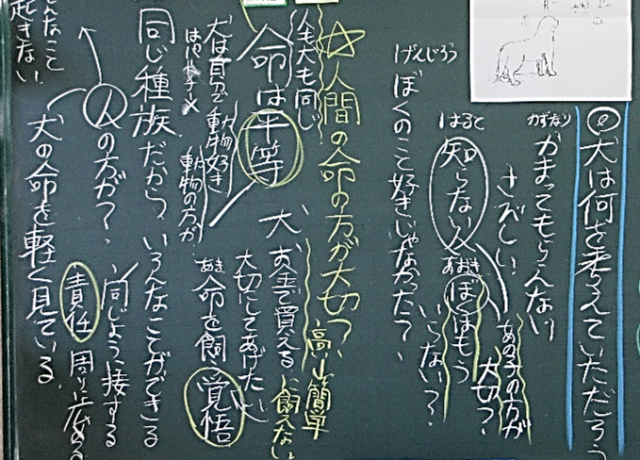 犬は何を考えていただろう
かずなり
かまってもらえない
さびしい
あの子の方が
大切?
はると
知らない人
あおき
ぼくはもう
いらない?
げんじろう
ぼくのこと好きじゃなかった?
☆人間の命の方が大切?
高い
簡単
に飼えない
犬も同じ
命は平等
犬 お金で買える
大切にしてあげたい
あき
命を飼う覚悟
犬は自分で
動物好き
動物の方が
同じ種族だから、いろんなことができる
人の方が?
同じよう接する
責任
周り
犬の命を軽く見ている
なこと
起きない